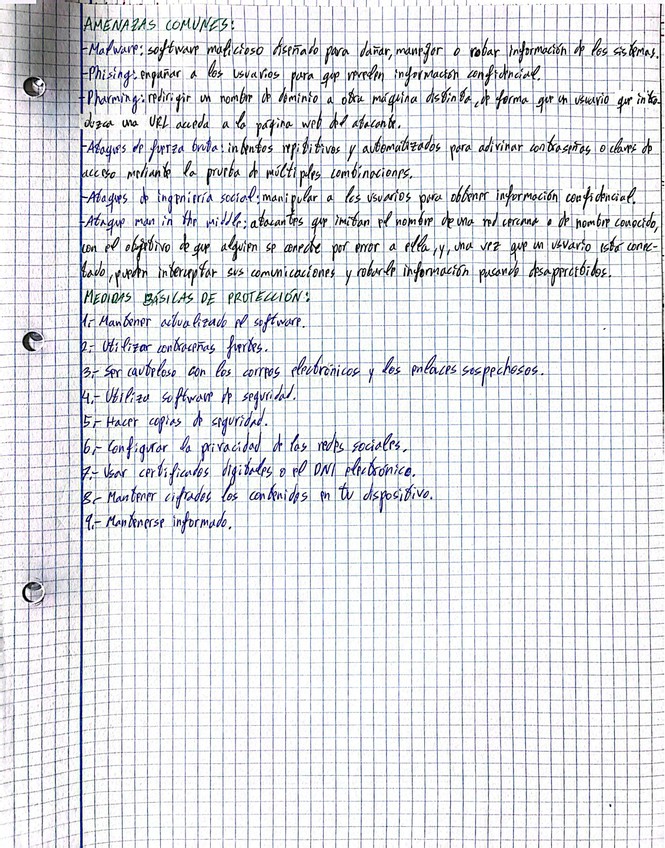 AMENAZAS COMUNES:
-Malware: software malicioso diseñado para dañar, manejar o robar información de los sistemas.
-Phising: engañar a los usuarios para que revelen información confidencial.
-Pharming: redirigir un nombre de dominio a otra máquina distinta, de forma que un usuario que intro
duzca una URL acceda a la página web del atacante.
-Ataques de fuerza bruta: intentos repititivos y automatizados para adivinar contraseñas o claves de
acceso mediante la prueba de múltiples combinaciones.
-Ataques de ingeniería social: manipular a los usuarios para obtener información confidencial.
-Ataque man in the middle: atacantes que imitan el nombre de una red cercana o de nombre conocido,
con el objetivo de que alguien se conecte por error a ella, y, una vez que un usuario está conec-
tado, pueden interceptar sus comunicaciones y robarle información pasando desapercibidos.
MEDIDAS BÁSICAS DE PROTECCIÓN:
1.- Mantener actualizado el software.
2.- Utilizar contraceñas fuertes.
3.- Ser cauteloso con los correos electrónicos y los enlaces sospechosos.
4.- Utiliza software de seguridad.
5.- Hacer copias de seguridad.
6.- Configurar la privacidad de las redes sociales.
7.- Usar certificados digitales o el DNI electrónico.
8.- Mantener cifrados los contenidos en tu dispositivo.
9.- Mantenerse informado.